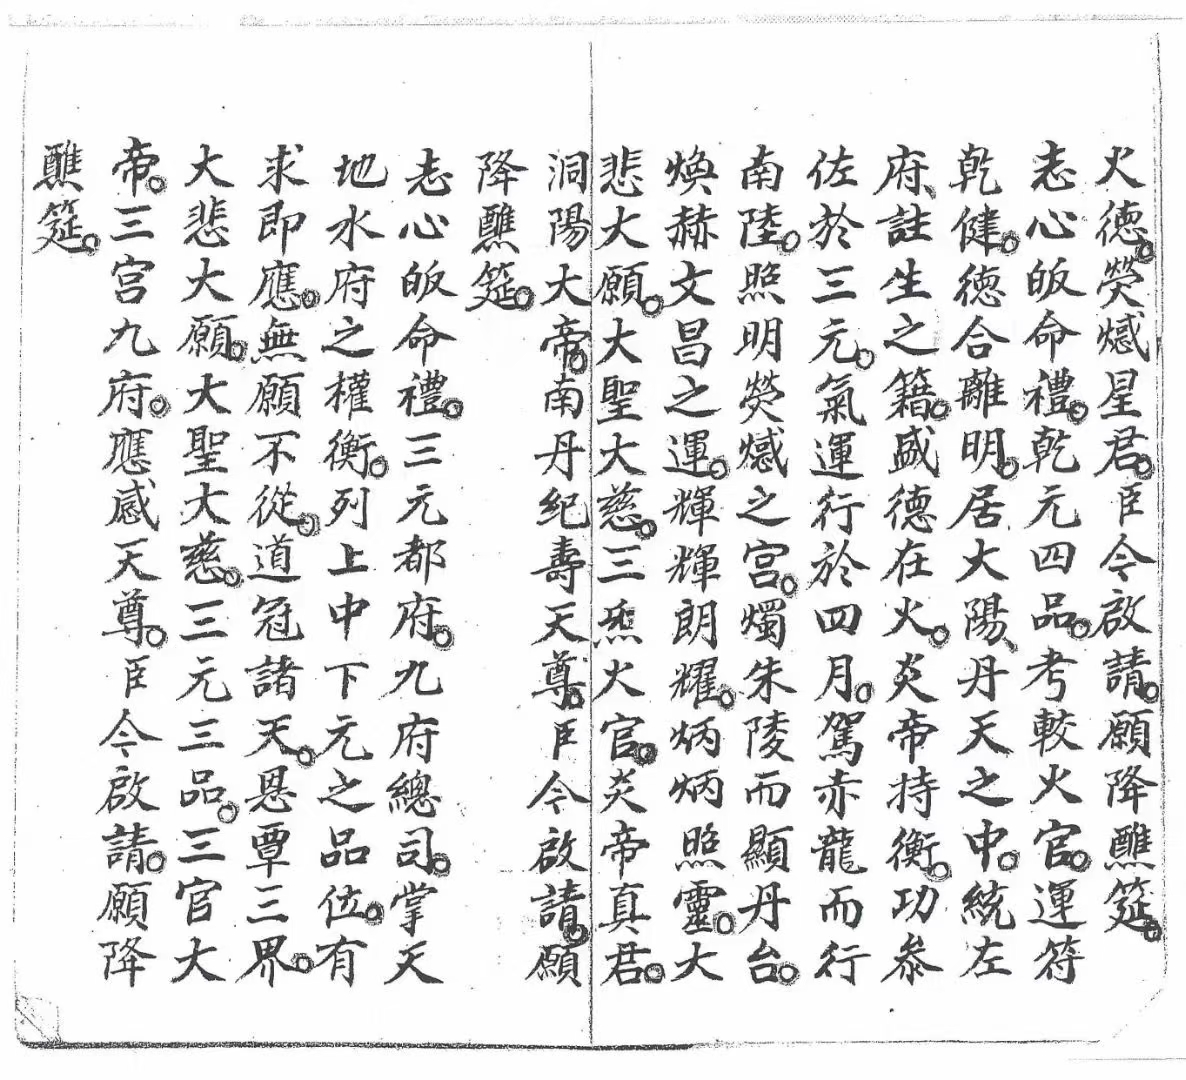 火德。熒惑星君。臣今啟請。願降醮筵。
志心皈命禮。乾元四品。考較火官。運符
乾健。德合離明。居大陽、丹天之中。統左
府、註生之籍。盛德在火。炎帝持衡。功叅
佐於三元。氣運行於四月。駕赤龍而行
南陸。照明熒惑之宮。燭朱陵而顯丹台。
煥赫文昌之運。輝輝朗耀。炳炳照靈。大
悲大願。大聖大慈。三炁火官。炎帝真君。
洞陽大帝。南丹紀壽天尊。臣今啟請。願
降醮筵。
志心皈命禮。三元都府。九府總司。掌天
地水府之權衡。列上中下元之品位。有
求即應。無願不從。道冠諸天。恩覃三界。
大悲大願。大聖大慈。三元三品。三官大
帝。三宮九府。應感天尊。臣今啟請。願降
醮筵。